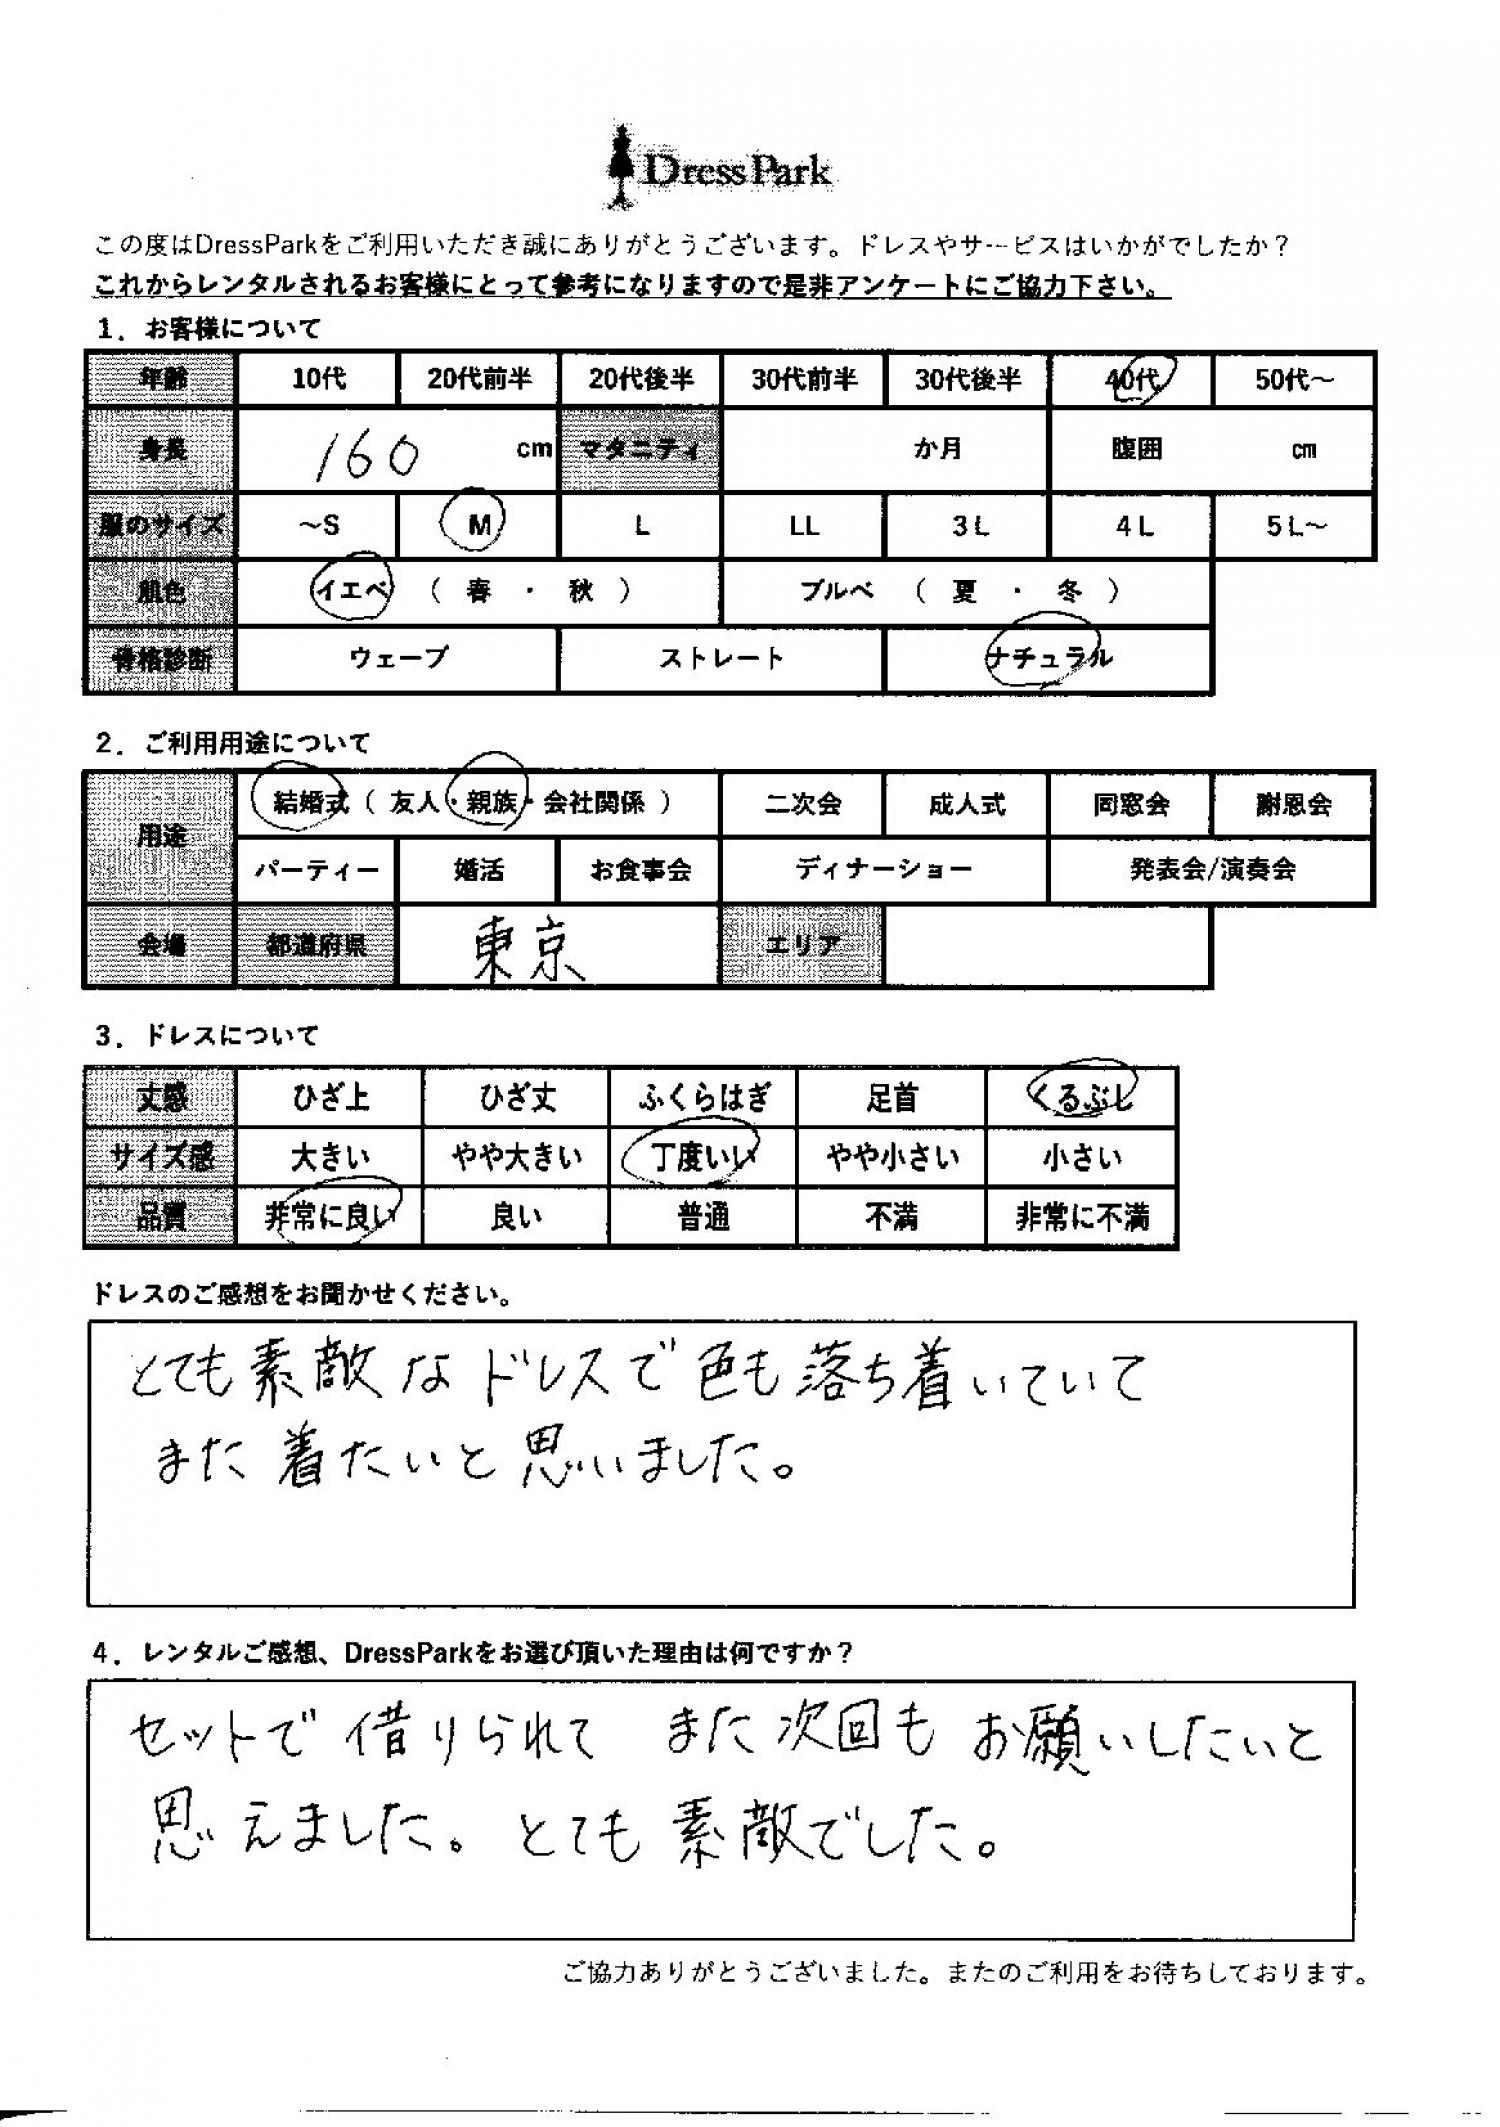 DressPark
この度はDressParkをご利用いただき誠にありがとうございます。ドレスやサービスはいかがでしたか？
これからレンタルされるお客様にとって参考になりますので是非アンケートにご協力下さい。
1．お客様について
年齢 10代 20代前半 20代後半 30代前半 30代後半 40代 50代～
身長 160 cm マタニティ か月 腹囲 cm
服のサイズ ～S M L LL 3L 4L 5L～
肌色 イエベ （ 春 ・ 秋 ） ブルベ （ 夏 ・ 冬 ）
骨格診断 ウェーブ ストレート ナチュラル
2．ご利用用途について
用途 結婚式（ 友人・親族・会社関係 ） 二次会 成人式 同窓会 謝恩会
パーティー 婚活 お食事会 ディナーショー 発表会/演奏会
会場 都道府県 東京 エリア
3．ドレスについて
丈感 ひざ上 ひざ丈 ふくらはぎ 足首 くるぶし
サイズ感 大きい やや大きい 丁度いい やや小さい 小さい
品質 非常に良い 良い 普通 不満 非常に不満
ドレスのご感想をお聞かせください。
とても素敵なドレスで色も落ち着いていて
また着たいと思いました。
4．レンタルご感想、DressParkをお選び頂いた理由は何ですか？
セットで借りられて また次回もお願いしたいと
思えました。とても素敵でした。
ご協力ありがとうございました。またのご利用をお待ちしております。